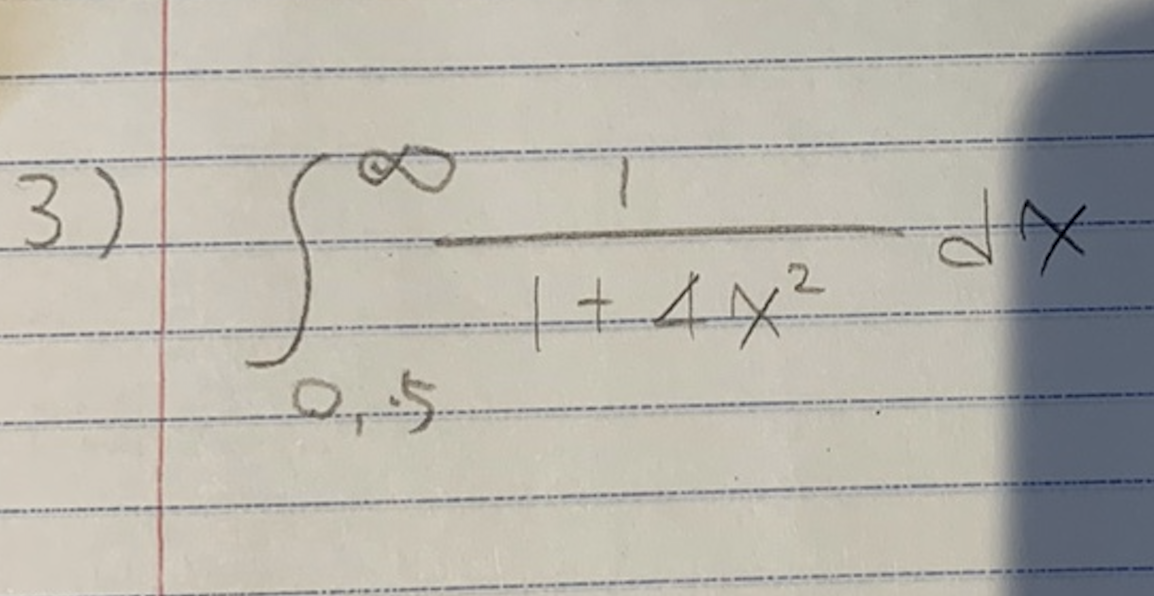 3) ∫_{0,5}^{∞} \frac{1}{1 + 4x^2} dx